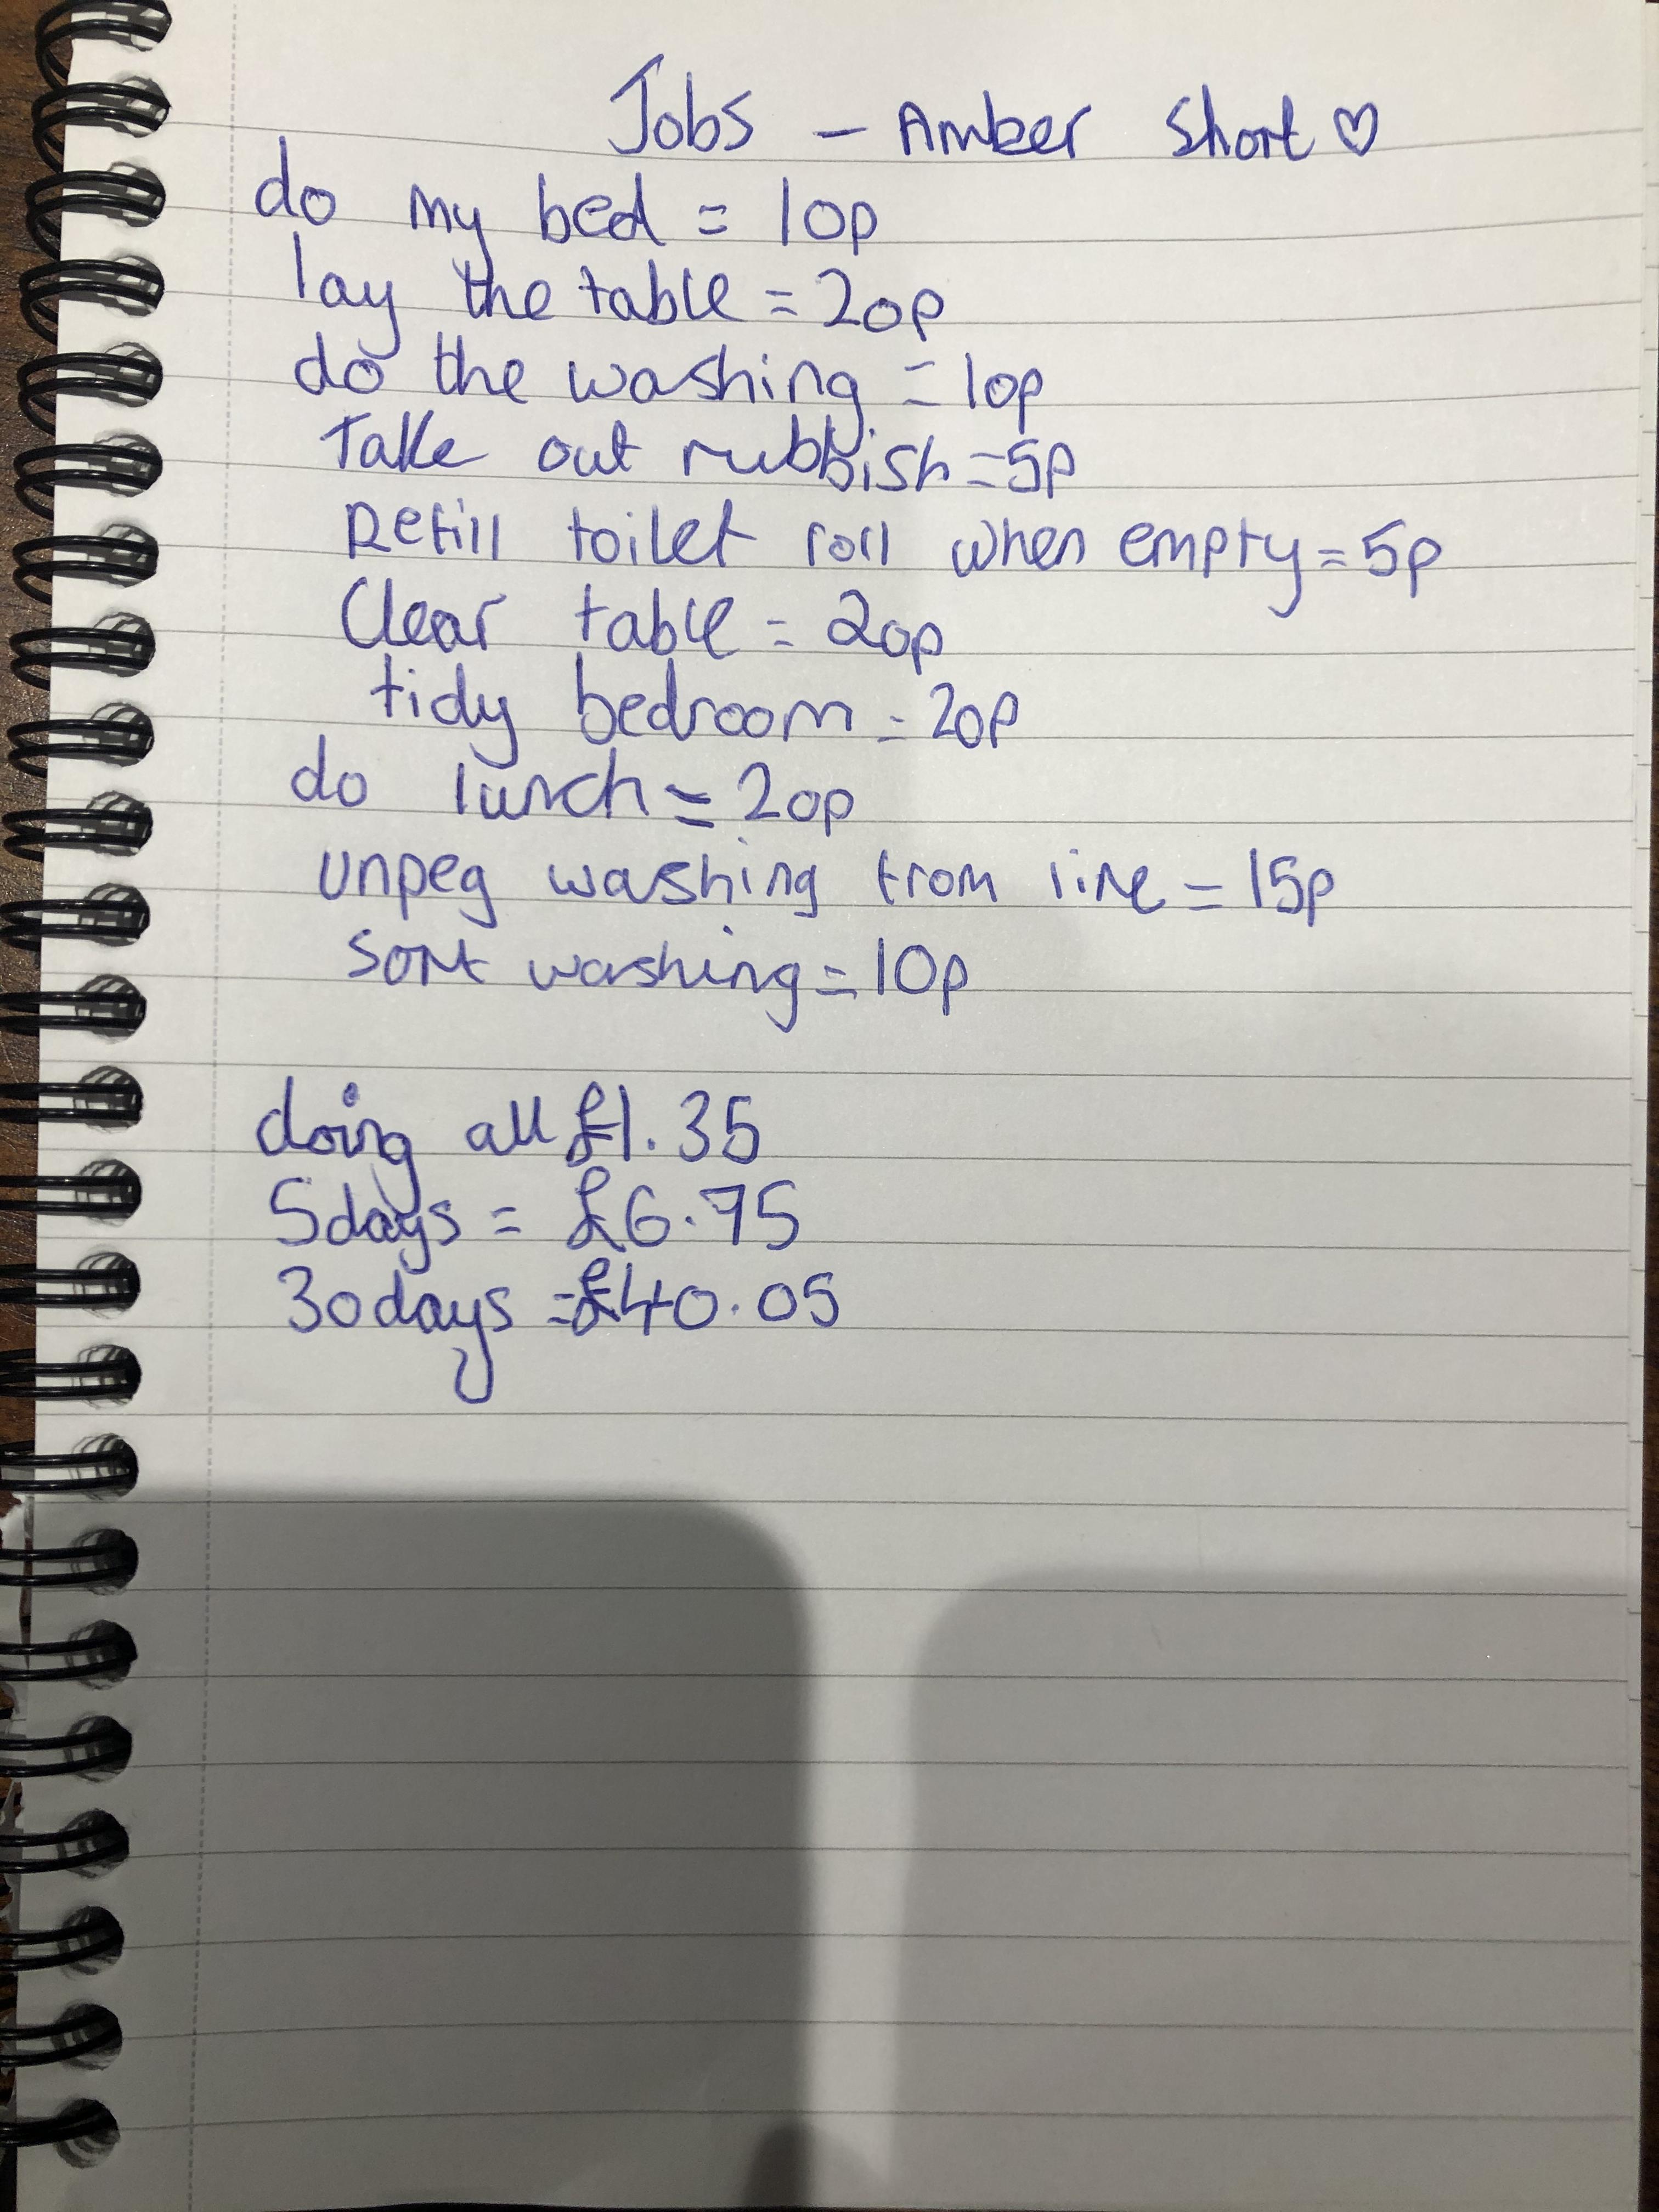 Jobs - Amber Short ♡
do my bed = 10p
lay the table = 20p
do the washing = 10p
Take out rubbish = 5p
Refill toilet roll when empty = 5p
Clear table = 20p
tidy bedroom = 20p
do lunch = 20p
unpeg washing from line = 15p
sort washing = 10p
doing all £1.35
5days = £6.75
30days = £40.05